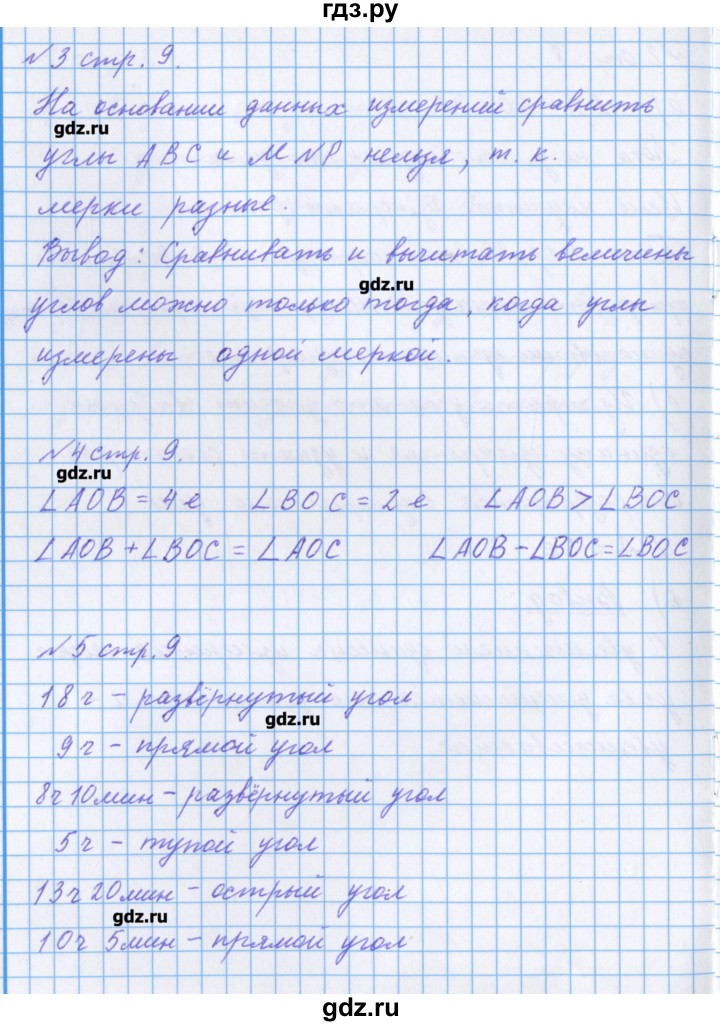 гдз.ру
№3 стр. 9.
На основании данных измерений сравнить
gdz.ru
углы ABC и MNP нельзя, т. к.
мерки разные.
Вывод: Сравнивать и вычитать величины
gdz.ru
углов можно только тогда, когда углы
измерены одной меркой.
№4 стр. 9.
gdz.ru
∠AOB = 4 e ∠BOC = 2 e ∠AOB > ∠BOC
∠AOB + ∠BOC = ∠AOC ∠AOB - ∠BOC = ∠BOC
№5 стр. 9
18 ч - развёрнутый угол
gdz.ru
9 ч - прямой угол
8 ч 10 мин - развёрнутый угол
5 ч - тупой угол
13 ч 20 мин - острый угол
gdz.ru
10 ч 5 мин - прямой угол
gdz.ru